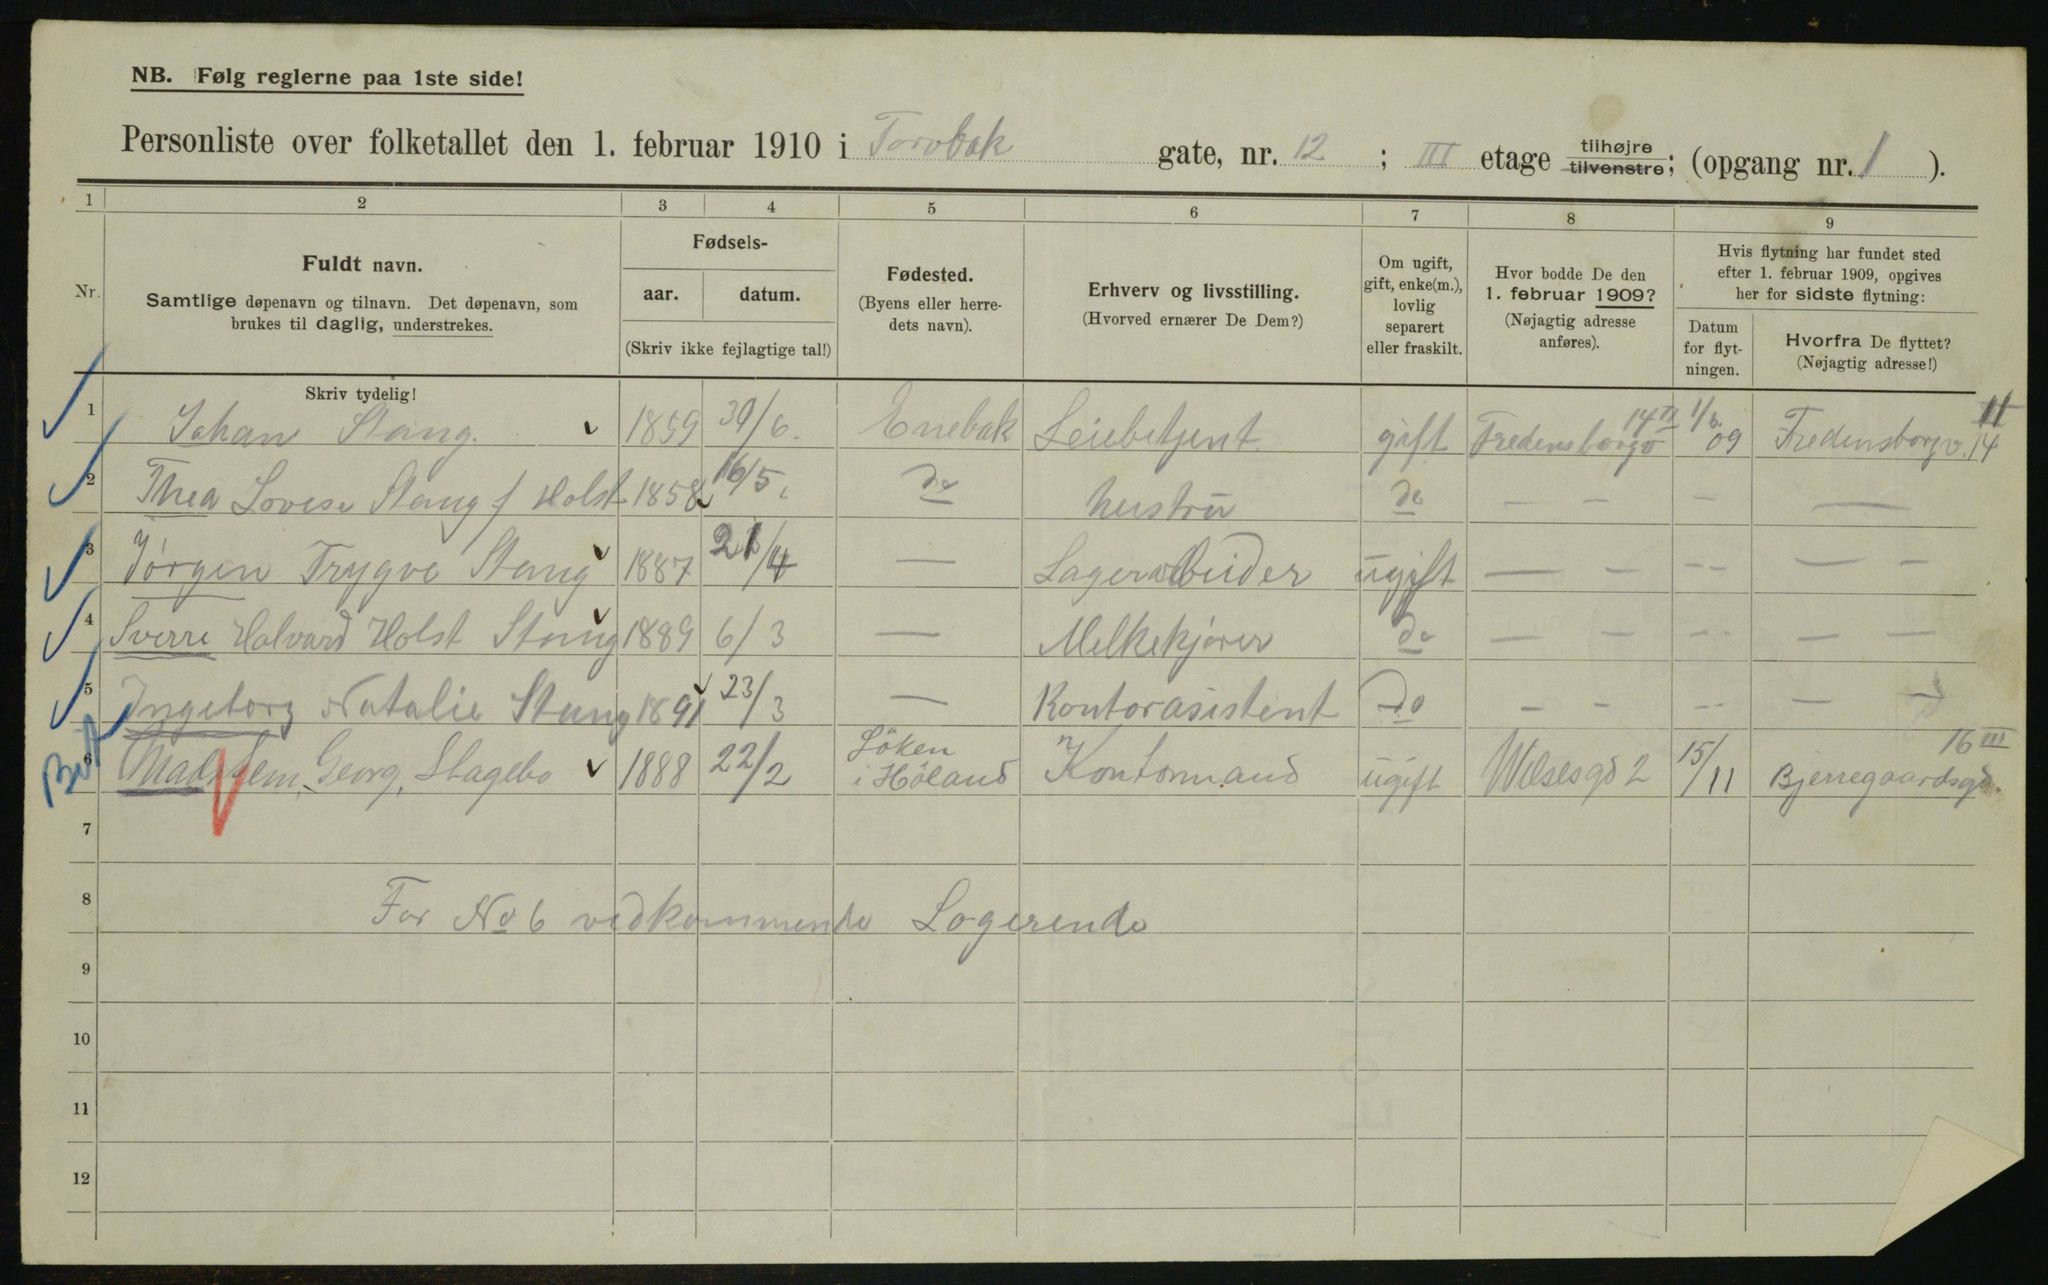 NB. Følg reglerne paa 1ste side!
Personliste over folketallet den 1. februar 1910 i Torvbak gate, nr. 12 ; III etage tilhøjre tilvenstre; (opgang nr. 1 ).
1 2 3 4 5 6 7 8 9
Nr.
Fuldt navn.
Samtlige døpenavn og tilnavn. Det døpenavn, som
brukes til daglig, understrekes.
Skriv tydelig!
Fødsels-
aar. datum.
(Skriv ikke fejlagtige tal!)
Fødested.
(Byens eller herre-
dets navn).
Erhverv og livsstilling.
(Hvorved ernærer De Dem?)
Om ugift,
gift, enke(m.),
lovlig
separert
eller fraskilt.
Hvor bodde De den
1. februar 1909?
(Nøjagtig adresse
anføres).
Hvis flytning har fundet sted
efter 1. februar 1909, opgives
her for sidste flytning:
Datum
for flyt-
ningen.
Hvorfra De flyttet?
(Nøjagtig adresse!)
1 Johan Stang. 1859 30/6. Enebak Leiebetjent gift Fredensborgv 14 II 1/3 09 Fredensborgv. 14 II
2 Thea Lovise Stang f Holst 1858 16/5. do hustru do — — — —
3 Jørgen Trygve Stang 1887 21/4 — Lagerarbeider ugift — — -- — —
4 Sverre Halvard Holst Stang 1889 6/3 — Melkekjører do — — -- — —
5 Ingeborg Natalie Stang 1891 23/3 — Kontorasistent do - - - -- — —
Bot
6 Georg, Stagebo 1888 22/2 Löken i Höland Kontormand ugift Wesesgd 2 15/11 Bjerregaardsgd. 16 III
7
8 For No 6 vedkommende Logerende
9
10
11
12